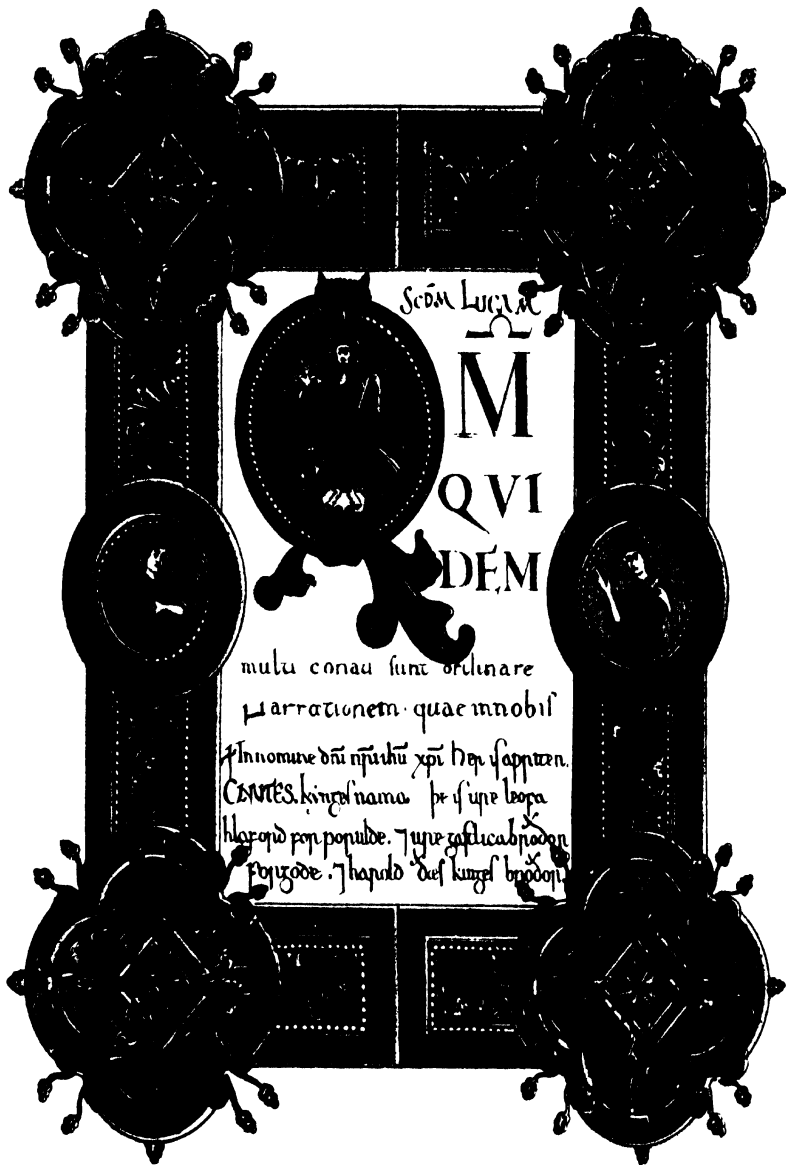 Scd̄m Lucam
Q M̄
QVI
DEM
multi conati sunt ordinare
Narrationem · quae in nobis
+ In nomine dn̄i nr̄i ih̄u xp̄i. Her is awriten.
CNVTES. kynges nama. þe is ure leofa
hlaford for worulde. ⁊ ure gastlica broðor
for gode. ⁊ harold ðæs kinges broðor.